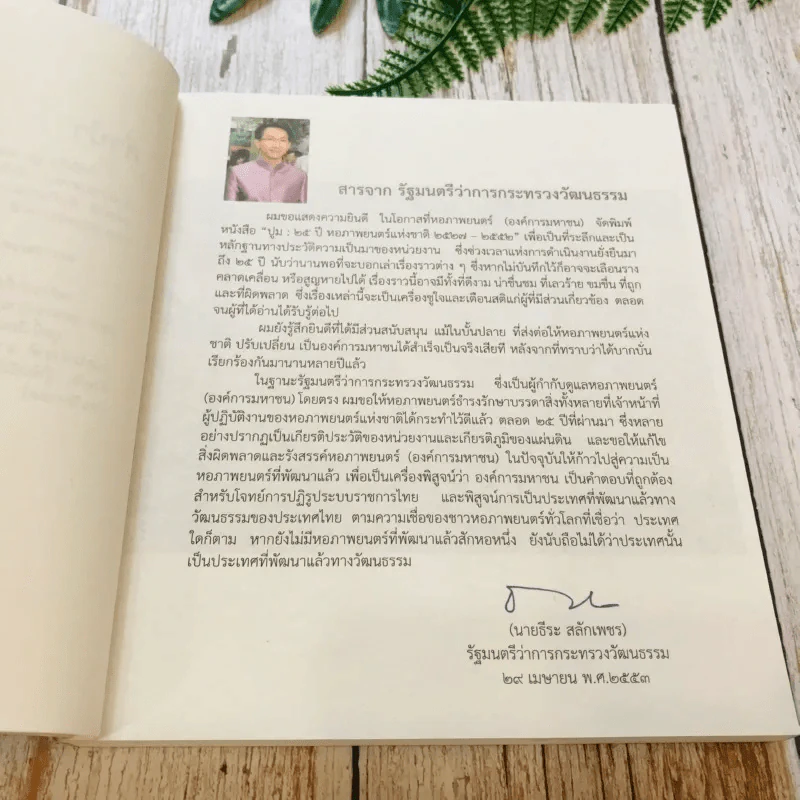 สารจาก รัฐมนตรีว่าการกระทรวงวัฒนธรรม
ผมขอแสดงความยินดี ในโอกาสที่หอภาพยนตร์ (องค์การมหาชน) จัดพิมพ์
หนังสือ "ปูม : ๒๕ ปี หอภาพยนตร์แห่งชาติ ๒๕๒๗ - ๒๕๕๒" เพื่อเป็นที่ระลึกและเป็น
หลักฐานทางประวัติความเป็นมาของหน่วยงาน ซึ่งช่วงเวลาแห่งการดำเนินงานยั่งยืนมา
ถึง ๒๕ ปี นับว่านานพอที่จะบอกเล่าเรื่องราวต่าง ๆ ซึ่งหากไม่บันทึกไว้ก็อาจจะเลือนราง
คลาดเคลื่อน หรือสูญหายไปได้ เรื่องราวนี้อาจมีทั้งที่ดีงาม น่าชื่นชม ที่เลวร้าย ขมขื่น ที่ถูก
และที่ผิดพลาด ซึ่งเรื่องเหล่านี้จะเป็นเครื่องชูใจและเตือนสติแก่ผู้ที่มีส่วนเกี่ยวข้อง ตลอด
จนผู้ที่ได้อ่านได้รับรู้ต่อไป
ผมยังรู้สึกยินดีที่ได้มีส่วนสนับสนุน แม้ในบั้นปลาย ที่ส่งต่อให้หอภาพยนตร์แห่ง
ชาติ ปรับเปลี่ยน เป็นองค์การมหาชนได้สำเร็จเป็นจริงเสียที หลังจากที่ทราบว่าได้บากบั่น
เรียกร้องกันมานานหลายปีแล้ว
ในฐานะรัฐมนตรีว่าการกระทรวงวัฒนธรรม ซึ่งเป็นผู้กำกับดูแลหอภาพยนตร์
(องค์การมหาชน) โดยตรง ผมขอให้หอภาพยนตร์ธำรงรักษาบรรดาสิ่งทั้งหลายที่เจ้าหน้าที่
ผู้ปฏิบัติงานของหอภาพยนตร์แห่งชาติได้กระทำไว้ดีแล้ว ตลอด ๒๕ ปีที่ผ่านมา ซึ่งหลาย
อย่างปรากฏเป็นเกียรติประวัติของหน่วยงานและเกียรติภูมิของแผ่นดิน และขอให้แก้ไข
สิ่งผิดพลาดและรังสรรค์หอภาพยนตร์ (องค์การมหาชน) ในปัจจุบันให้ก้าวไปสู่ความเป็น
หอภาพยนตร์ที่พัฒนาแล้ว เพื่อเป็นเครื่องพิสูจน์ว่า องค์การมหาชน เป็นคำตอบที่ถูกต้อง
สำหรับโจทย์การปฏิรูประบบราชการไทย และพิสูจน์การเป็นประเทศที่พัฒนาแล้วทาง
วัฒนธรรมของประเทศไทย ตามความเชื่อของชาวหอภาพยนตร์ทั่วโลกที่เชื่อว่า ประเทศ
ใดก็ตาม หากยังไม่มีหอภาพยนตร์ที่พัฒนาแล้วสักหอหนึ่ง ยังนับถือไม่ได้ว่าประเทศนั้น
เป็นประเทศที่พัฒนาแล้วทางวัฒนธรรม
(นายธีระ สลักเพชร)
รัฐมนตรีว่าการกระทรวงวัฒนธรรม
๒๙ เมษายน พ.ศ.๒๕๕๓